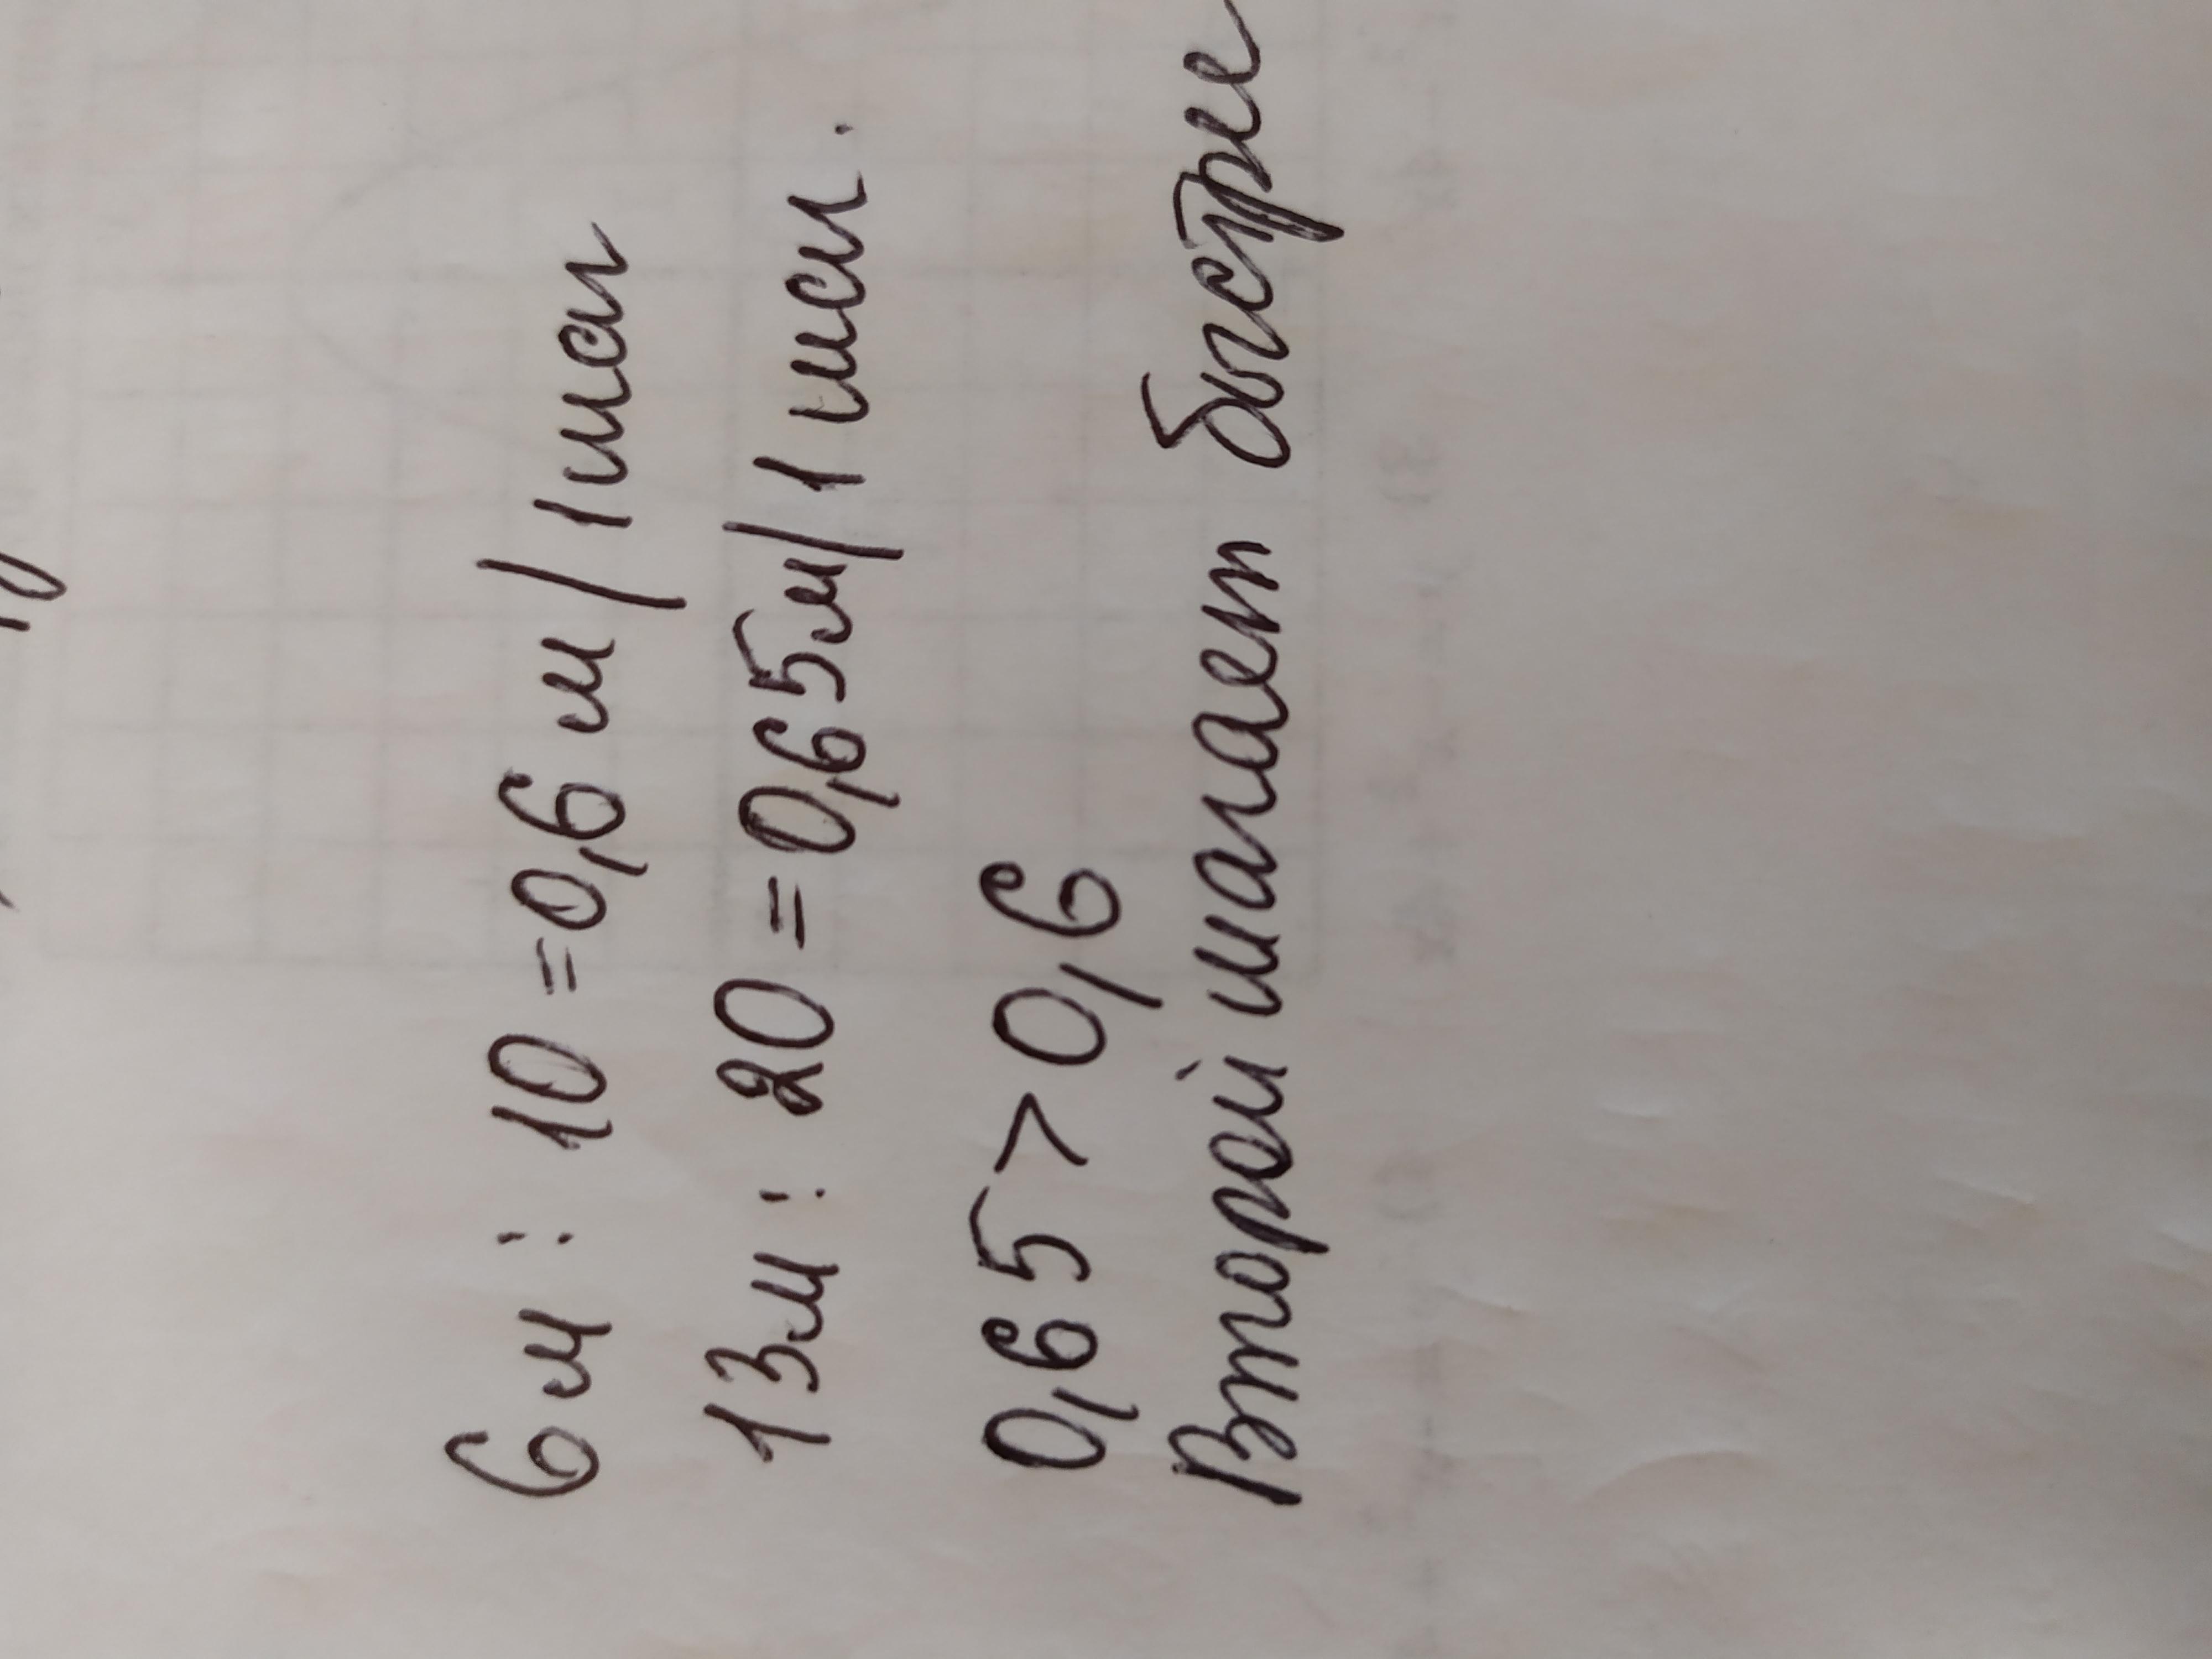 6м : 10 = 0,6 м/1шаг
13м : 20 = 0,65м/1 шаг.
0,65 > 0,6
Второй шагает быстрее